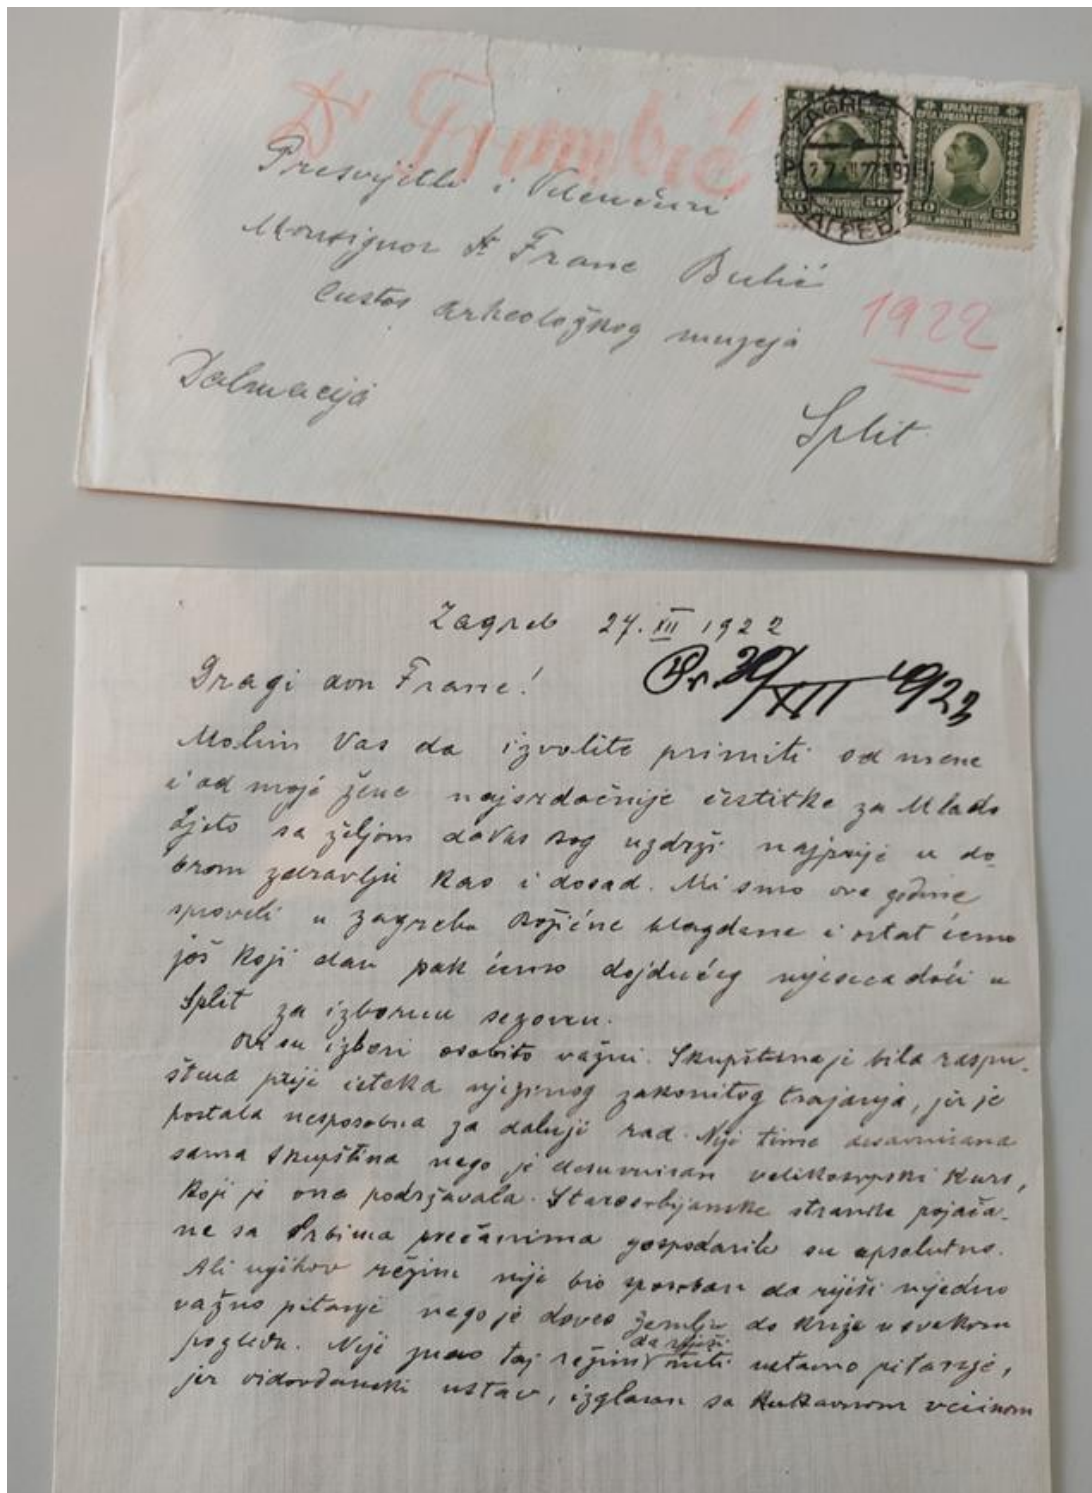 Dr Trumbić
Presvijetli i Velečasni
Monsignor Dr Frane Bulić
Custos arheološkog muzeja
1922
Dalmacija
Split
ZAGREB
ЗАГРЕБ
КРАЉЕВСТВО
СРБА, ХРВАТА И СЛОВЕНАЦА
50 50
KRALJEVSTVO
SRBA, HRVATA I SLOVENACA
Zagreb 27. XII 1922
Dragi don Frane!
Pr. 30/XII 1922
Molim Vas da izvolite primiti od mene
i od moje žene najsrdačnije čestitke za Mlado
Ljeto sa željom da Vas Bog uzdrži najprije u do-
brom zdravlju kao i dosad. Mi smo ove godine
sproveli u Zagrebu Božićne blagdane i ostat ćemo
još koji dan pak ćemo dojdućeg mjeseca doći u
Split za izbornu sezonu.
Ovi su izbori osobito važni. Skupština je bila raspu-
štena prije isteka njezinog zakonitog trajanja, jer je
postala nesposobna za dalnji rad. Nije time desavuirana
sama skupština nego je desavuiran velikosrpski kurs,
koji je ona podržavala. Starosrbijanske stranke pojača-
ne sa Srbima prečanima gospodarile su apsolutno.
Ali njihov režim nije bio sposoban da riješi nijedno
važno pitanje nego je doveo zemlju do krize u svakom
pogledu. Nije taj režim da riješi niti ustavno pitanje,
jer vidovdanski ustav, izglasan sa kukavnom većinom